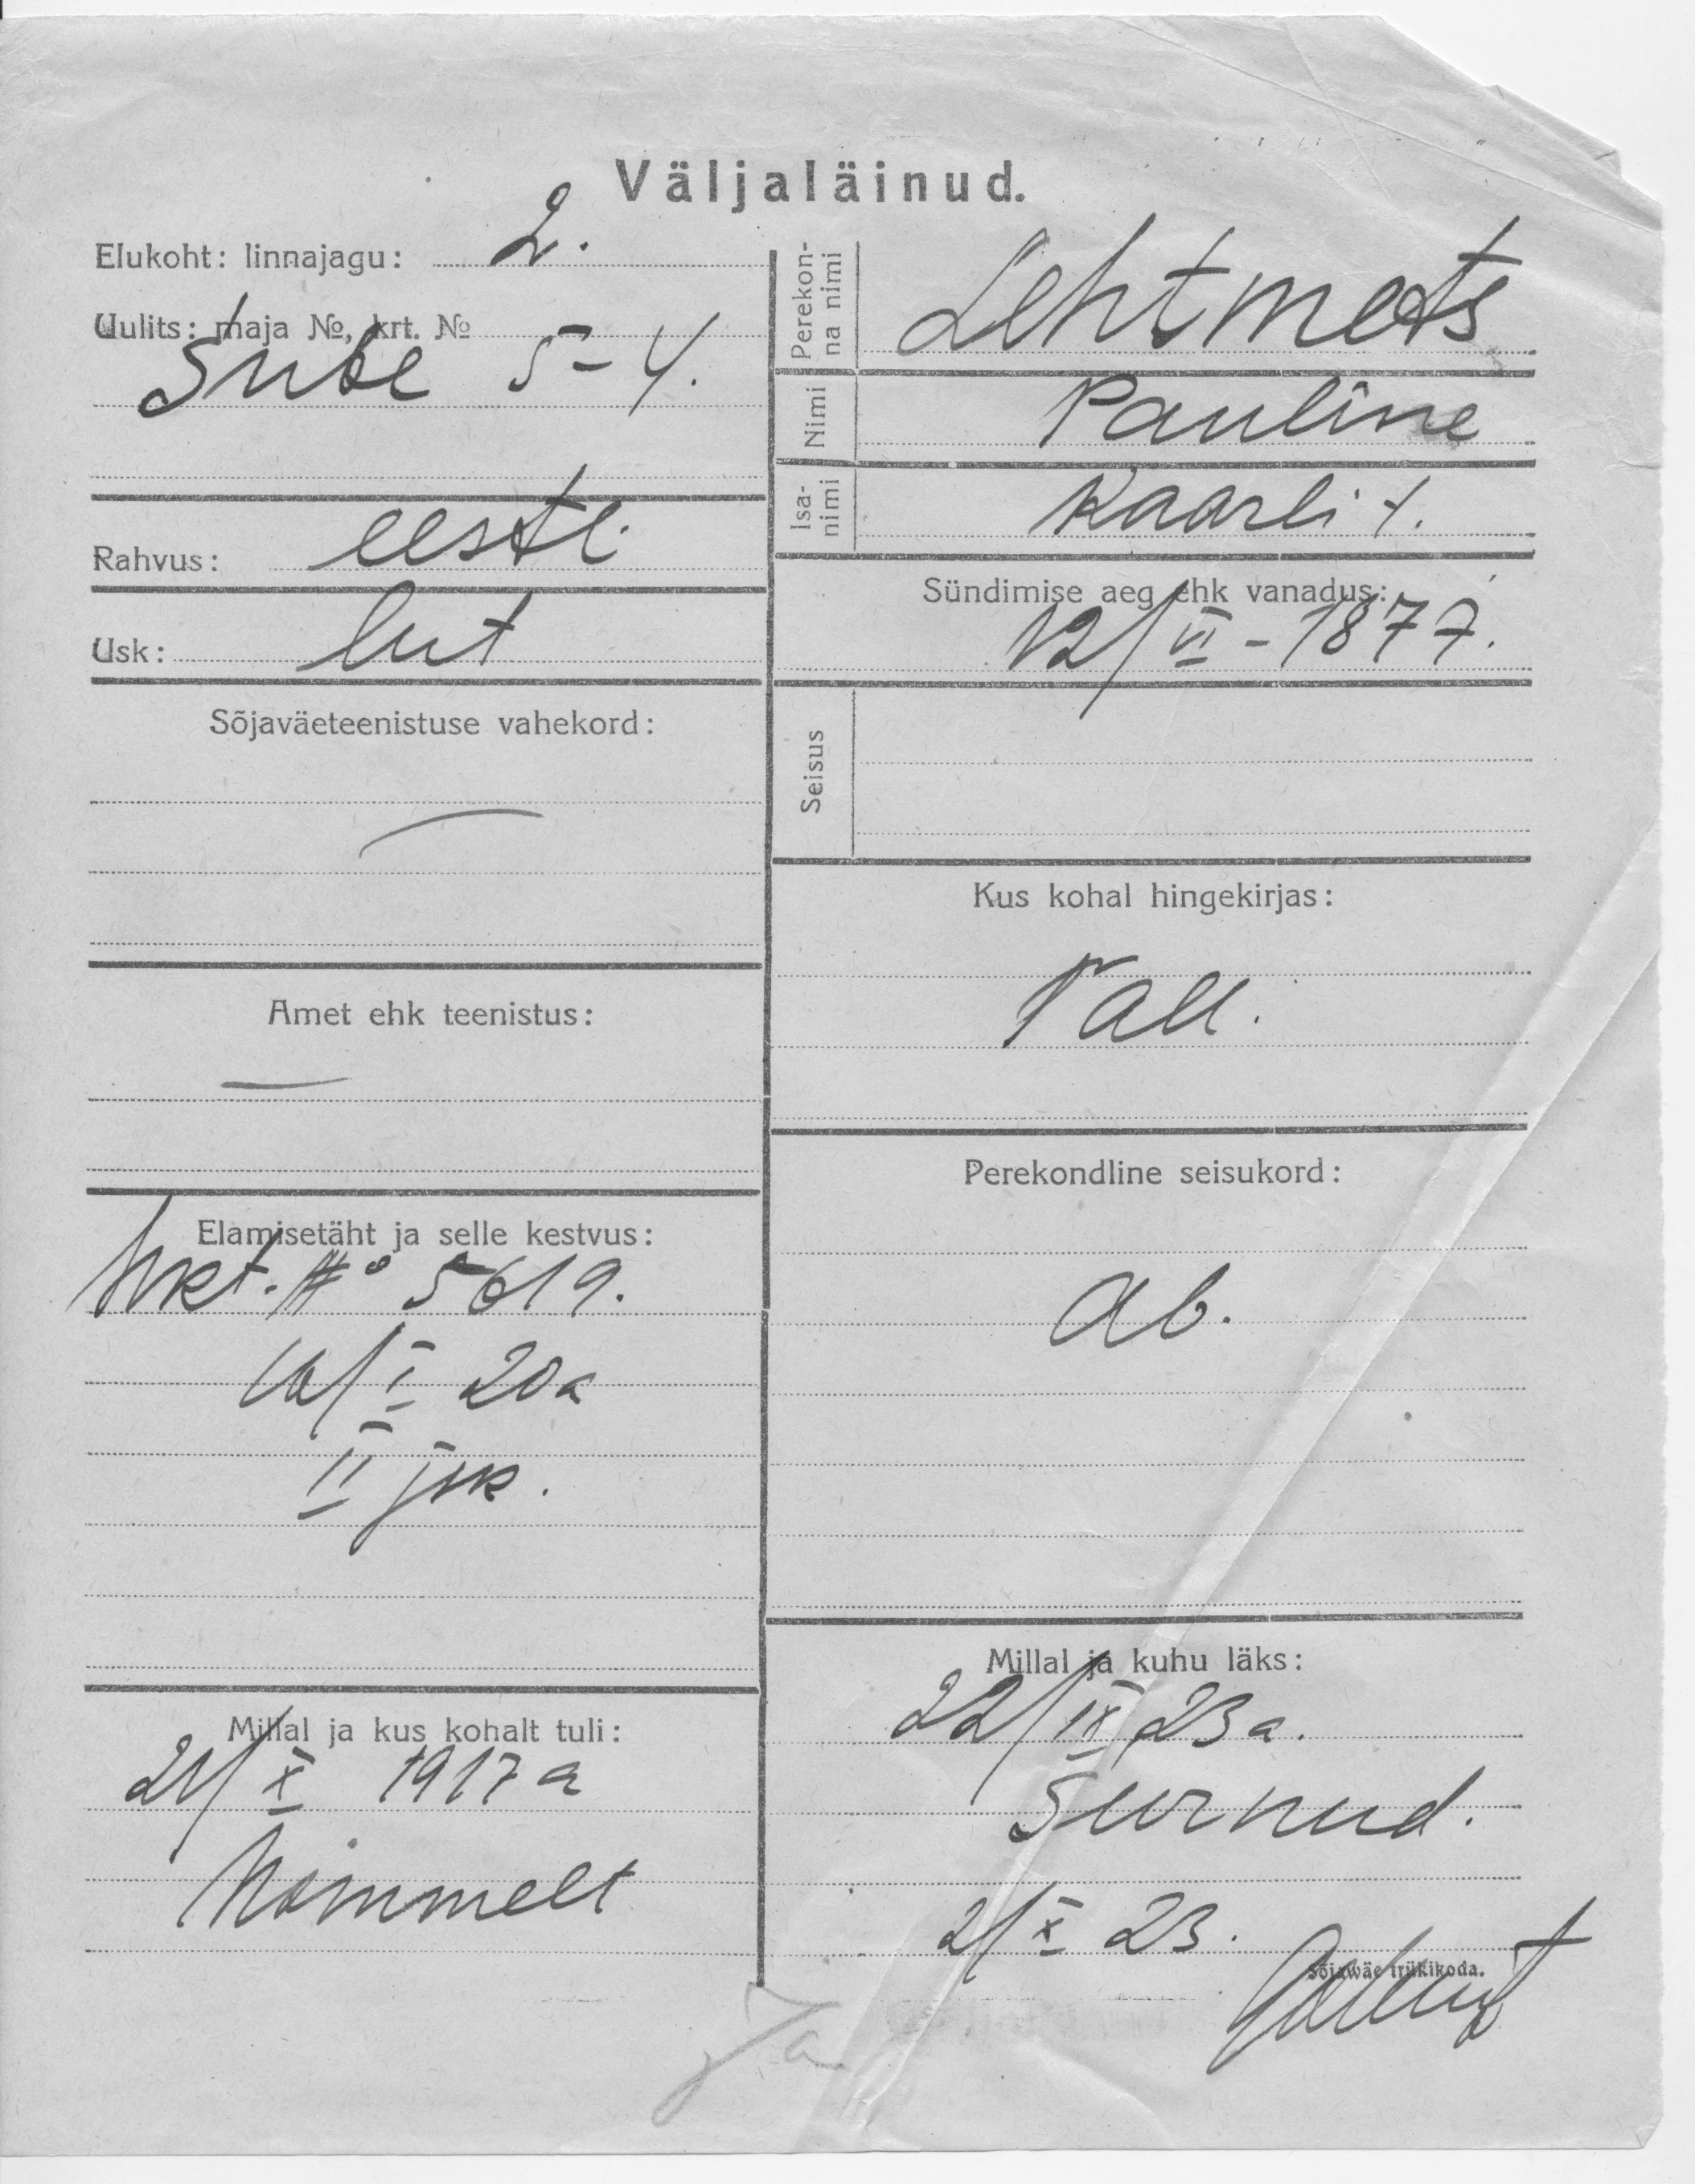 Väljaläinud.
Elukoht: linnajagu: 2.
Uulits: maja №, krt. №
Suve 5-4.
Rahvus: eesti
Usk: lut
Sõjaväeteenistuse vahekord:
Amet ehk teenistus:
Elamisetäht ja selle kestvus:
№ 5619.
10/I 20a
II jsk.
Millal ja kus kohalt tuli:
21/X 1917 a
Nõmmelt
Perekonna nimi Lehtmets
Nimi Pauline
Isanimi Kaarli t.
Sündimise aeg ehk vanadus:
12/VI-1877.
Seisus
Kus kohal hingekirjas:
Tall.
Perekondline seisukord:
ab.
Millal ja kuhu läks:
22/IX 23 a.
Surnud.
2/X 23.
Sõjawäe trükikoda.
Ja